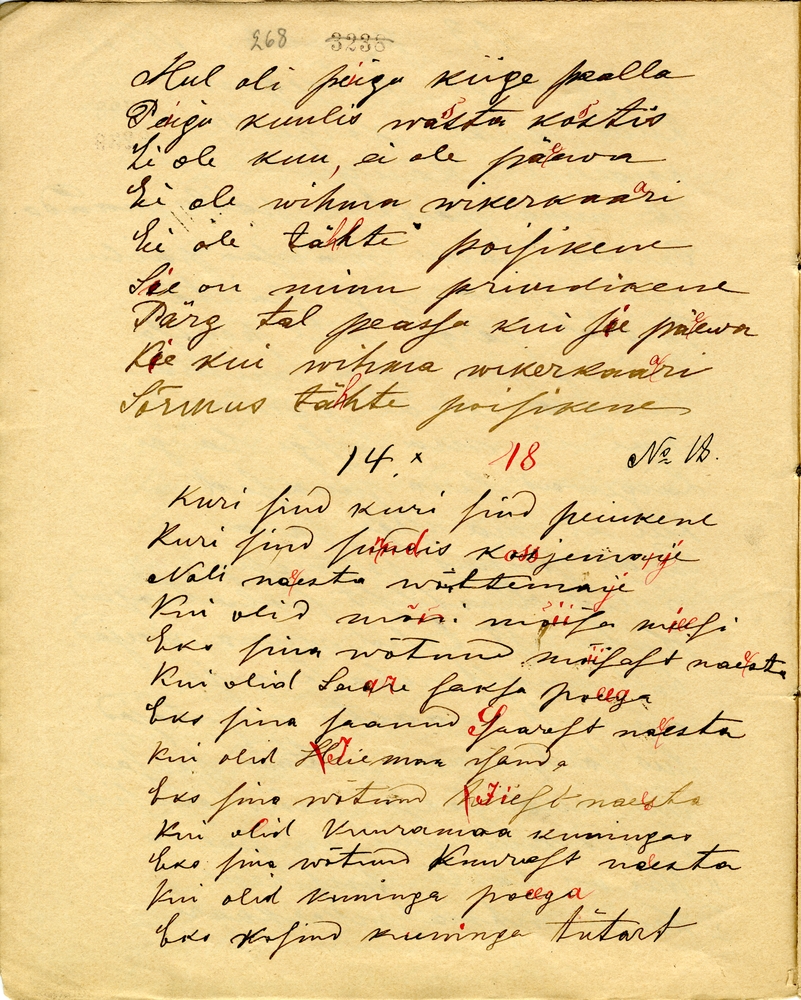 268 3235
Mul oli peigu kiige pealla
Peigu kuulis wasta kostis
Ei ole kuu, ei ole päewa
Ei ole wihma wikerkaari
Ei ole tähte poisikene
Sie on minu priudikene
Pärg tal peassa kui sie päewa
Kie kui wihma wikerkaari
Sõrmus tähte poisikene
14. × 18 No 18.
Kuri sind kuri sind peiukene
Kuri sind sundis kosjemaije
Nali naesta wõttemaije
Kui olid mõni mõisa miesi
Eks sina wõtnud mõisast naesta
Kui olid Saare saksa poega
Eks sina saanud Saarest naesta
Kui olid Hiiemaa isanda
Eks sina wõtnud Hiiest naesta
Kui olid Kuuramaa kuningas
Eks sina wõtnud Kuurast naesta
Kui olid kuninga poega
Eks kosind kuninga tütart